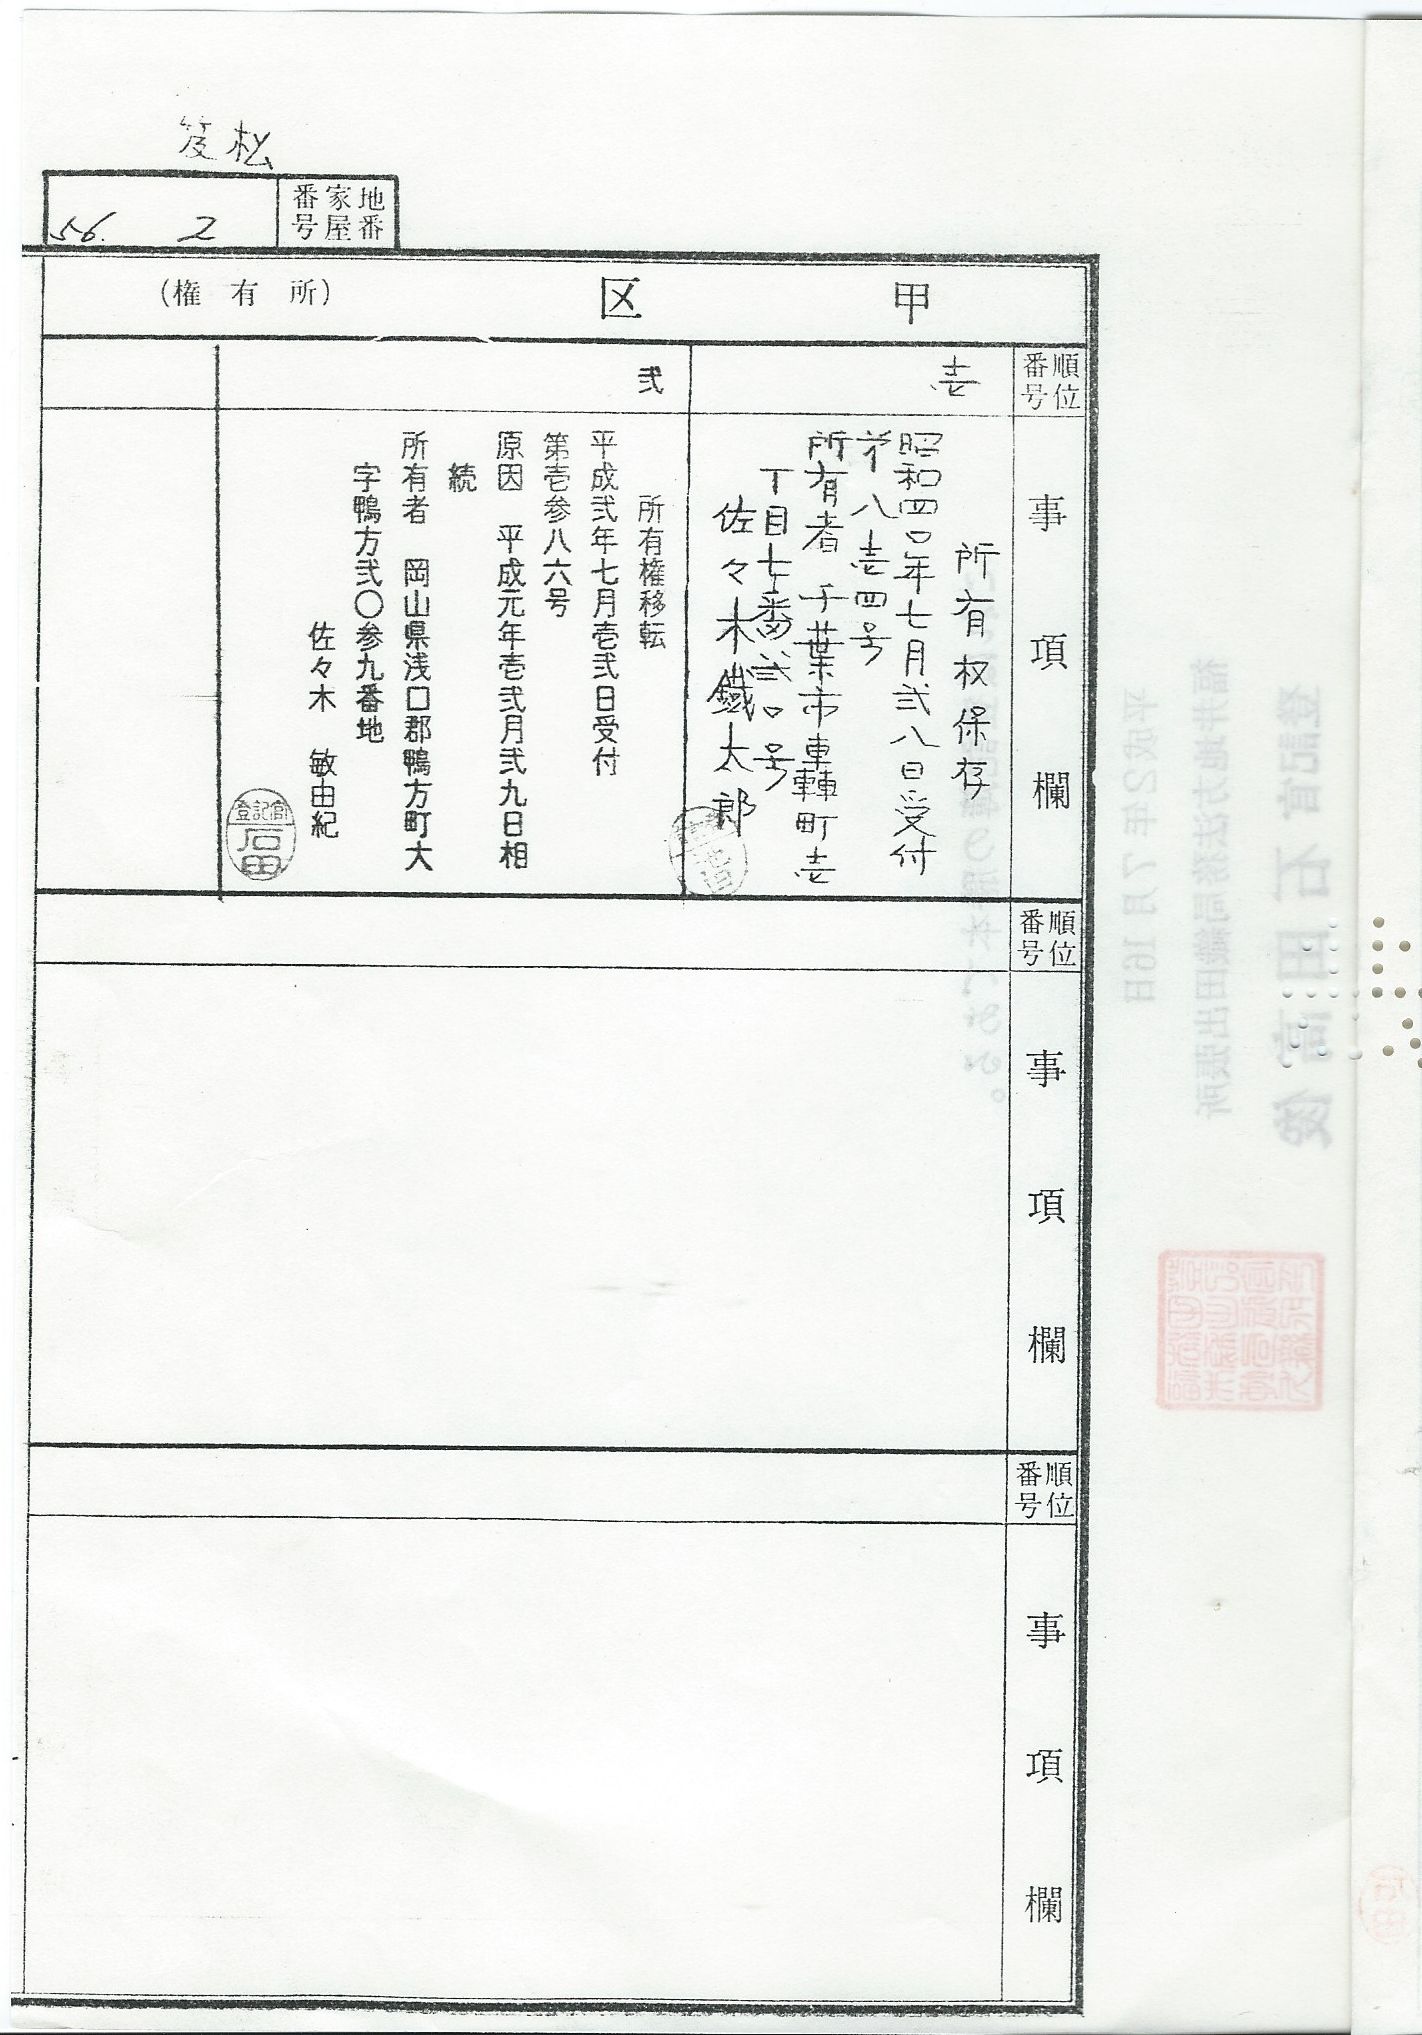 笈松
地番
家屋番号
56. 2
甲区
(所有権)
順位番号
事項欄
壱
所有权保存
昭和四〇年七月弐八日受付
㐧八壱四号
所有者 千葉市車轉町壱
丁目七番弐〇号
佐々木鐵太郎
弐
所有権移転
平成弐年七月壱弐日受付
第壱参八六号
原因 平成元年壱弐月弐九日相
続
所有者 岡山県浅口郡鴨方町大
字鴨方弐〇参九番地
佐々木 敏由紀
登記官
石田
順位番号
事項欄
順位番号
事項欄
平成2年7月16日
登記官 石田